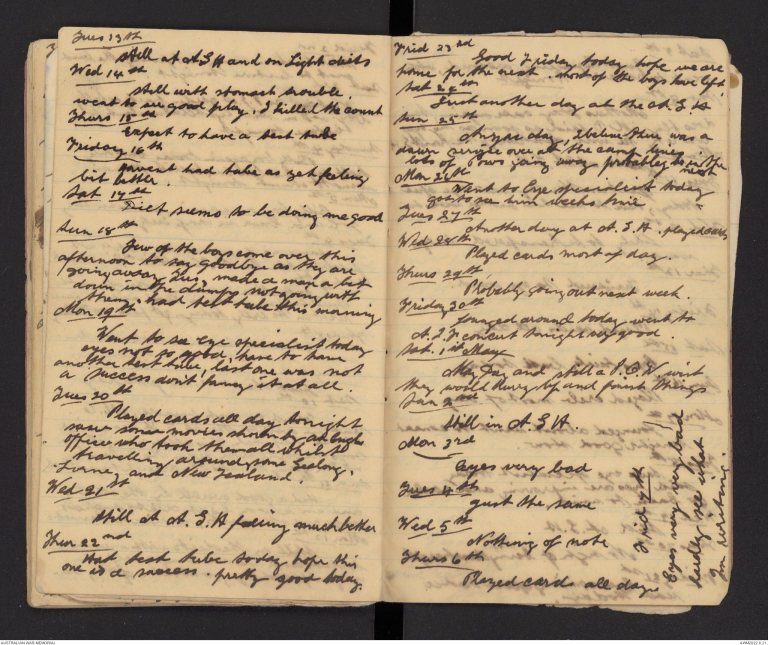 Tues 13th
Still at A.G.H and on Light diets
Wed 14th
Still with stomach trouble,
went to see good play, I killed the count
Thurs 15th
Expect to have a test tube
Friday 16th
Havent had tube as yet feeling
bit better.
Sat 17th
Diet seems to be doing me good
Sun 18th
Few of the boys come over this
afternoon to say goodbye as they are
going away Tues made a man a bit
down in the dumps not going with
them, had test tube this morning
Mon 19th
Went to see eye specialist today
eyes not so good, have to have
another test tube, last one was not
a success don't fancy it at all.
Tues 20th
Played cards all day tonight
saw some movies shown by an English
officer who took them all whilst
travelling around some Geelong,
Lorne, and New Zealand.
Wed 21st
Still at A.G.H feeling much better
Thur 22nd
Had test tube today hope this
one is a success. pretty good today.
Frid 23rd
Good Friday today hope we are
home for the next. most of the boys have left
Sat 24th
Just another day at the A.G.H
Sun 25th
Anzac day, I believe there was a
dawn service over at the camp lines.
lots of Pows going away probably be in the
next
Mon 26th
Went to Eye specialist today
got to see him weeks time
Tues 27th
Another day at A.G.H. played cards
Wed 28th
Played cards most of day.
Thurs 29th
Probably going out next week.
Friday 30th
Lounged around today went to
A.I.F. concert tonight very good.
Sat. 1st May
May Day and still a P.O.W. wish
they would hurry up and finish things
Sun 2nd
Still in A.G.H.
Mon 3rd
Eyes very bad
Tues 4th
Just the same
Wed 5th
Nothing of note
Thurs 6th
Played cards all day
Frid 7th
Eyes very very bad
hardly see what
Im writing.
AUSTRALIAN WAR MEMORIAL